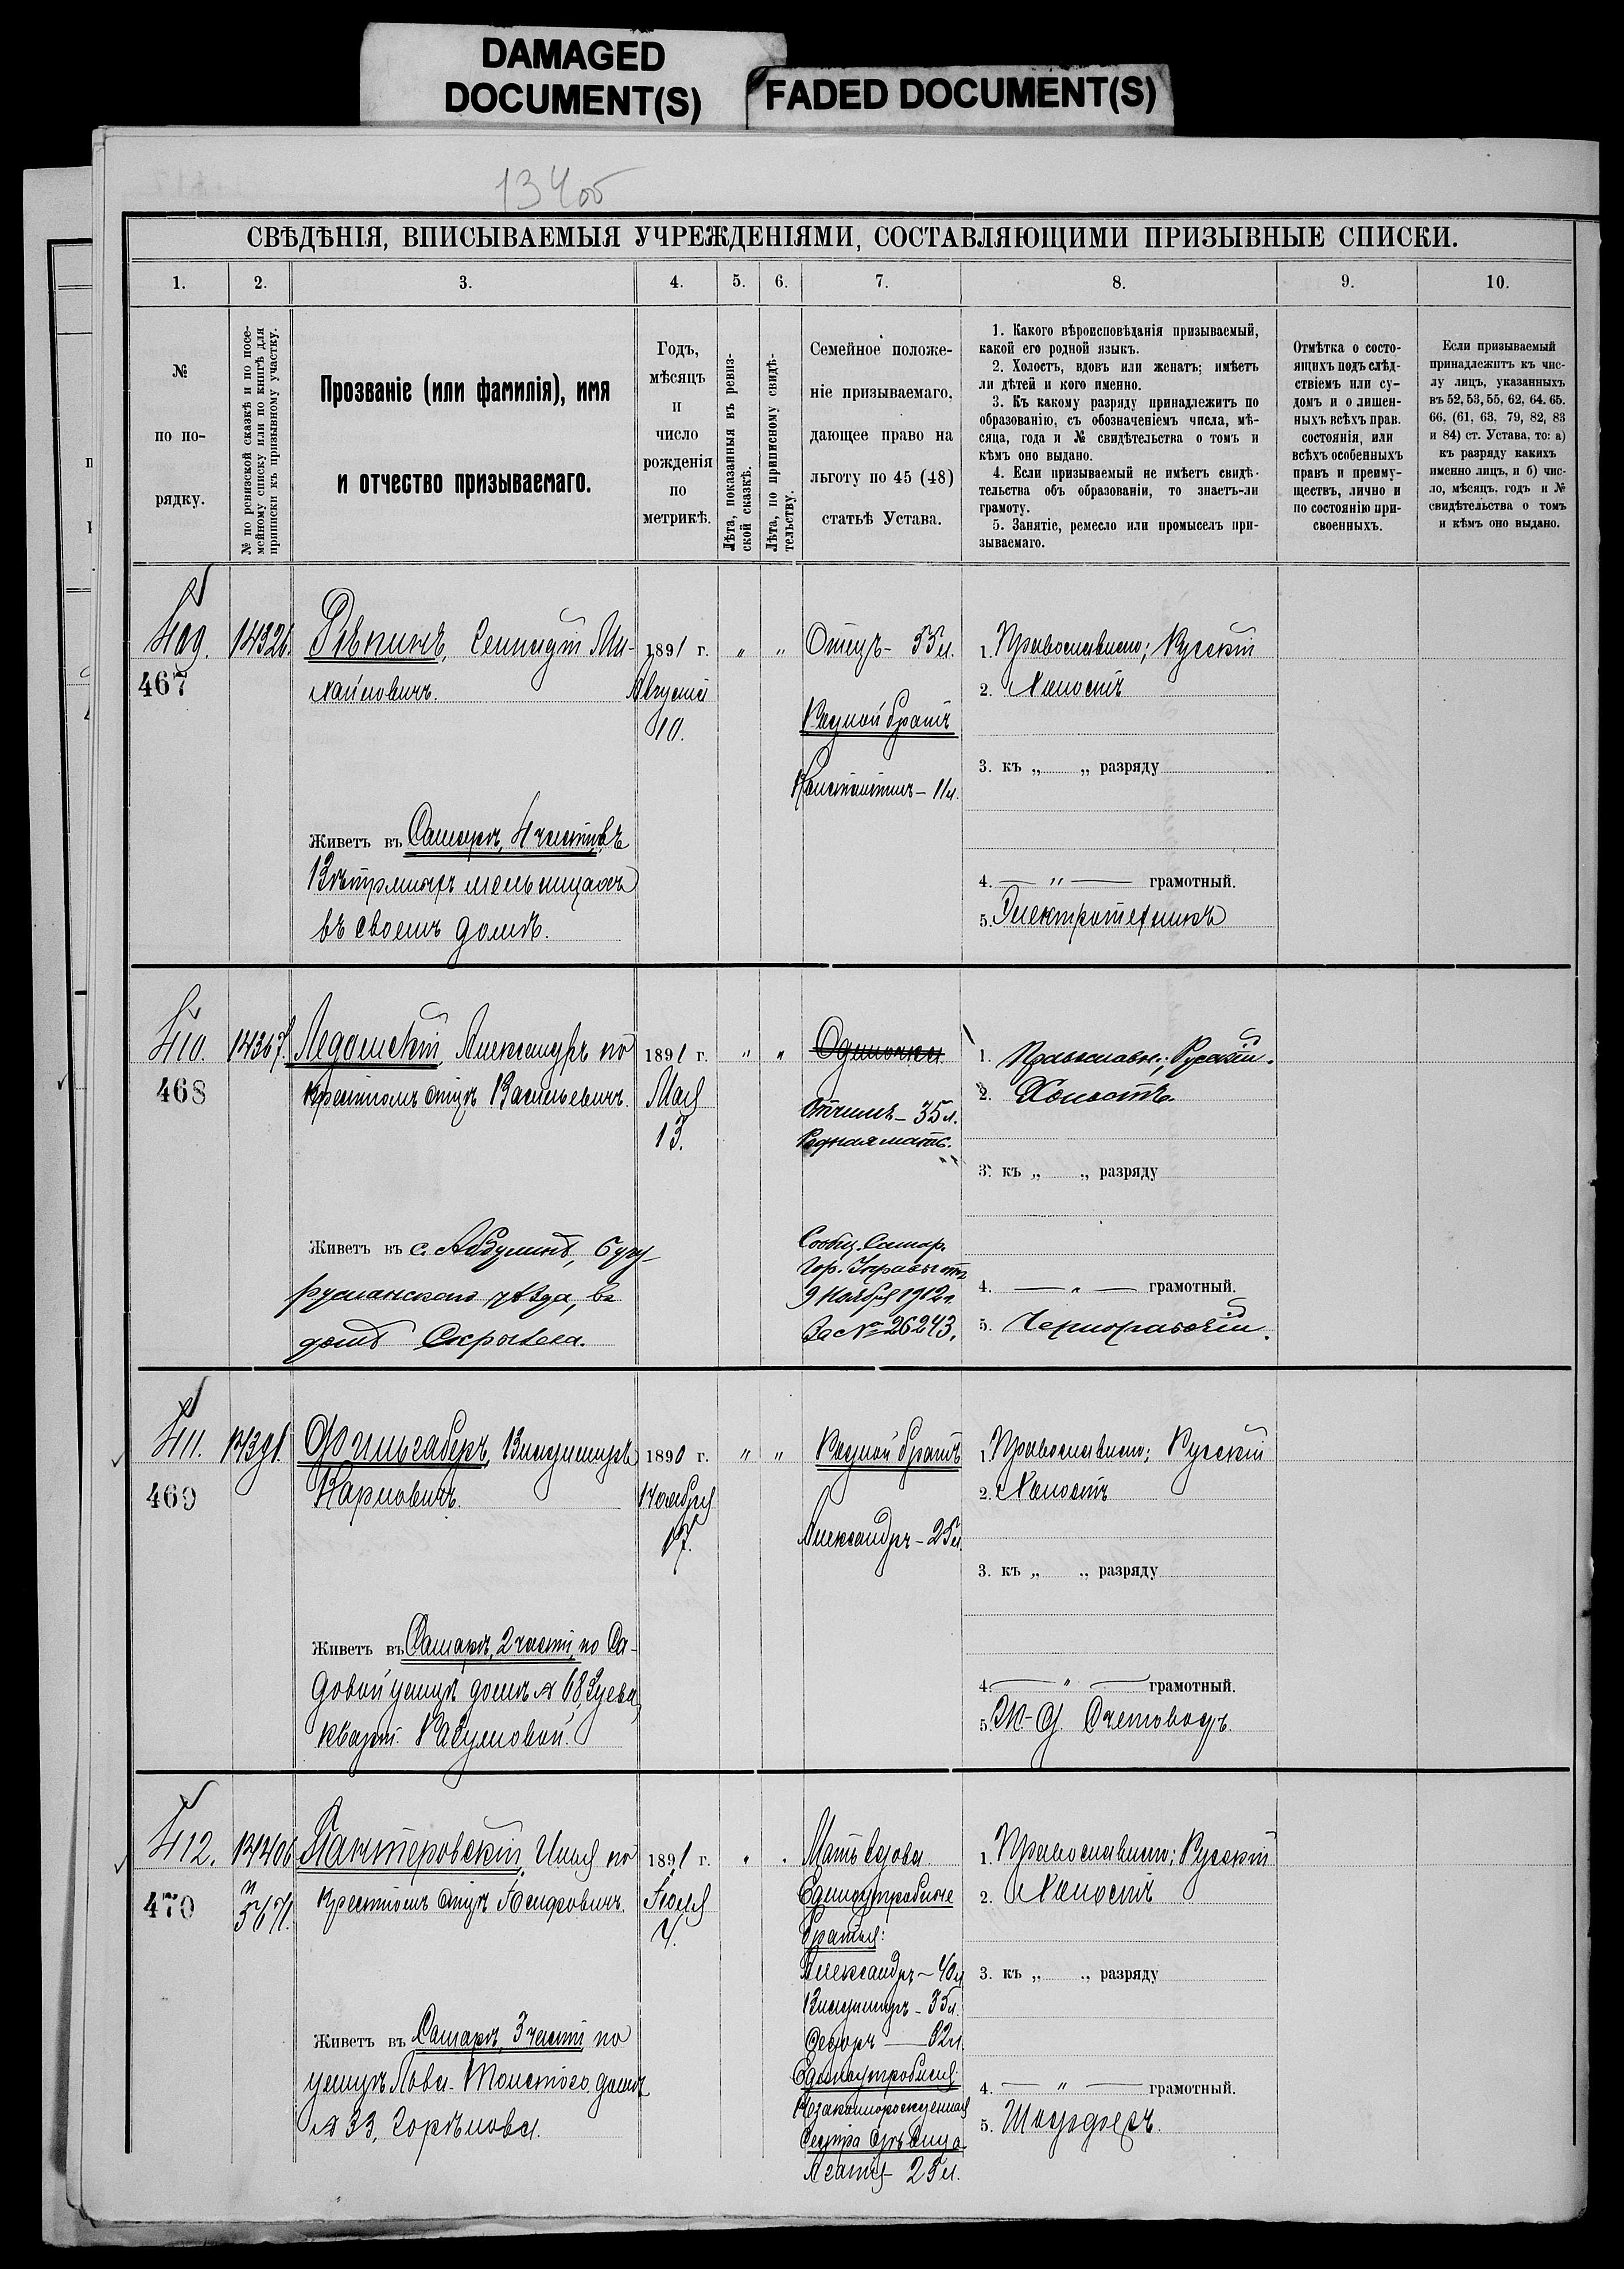 DAMAGED
DOCUMENT(S)
FADED DOCUMENT(S)
134 об
СВѢДѢНІЯ, ВПИСЫВАЕМЫЯ УЧРЕЖДЕНІЯМИ, СОСТАВЛЯЮЩИМИ ПРИЗЫВНЫЕ СПИСКИ.
1. 2. 3. 4. 5. 6. 7. 8. 9. 10.
№
по по-
рядку.
№ по ревизской сказкѣ и по посе-
мейному списку или по книгѣ для
приписки къ призывному участку.
Прозваніе (или фамилія), имя
и отчество призываемаго.
Годъ,
мѣсяцъ
и
число
рожденія
по
метрикѣ.
Лѣта, показанныя въ ревиз-
ской сказкѣ.
Лѣта, по приписному свидѣ-
тельству.
Семейное положе-
ніе призываемаго,
дающее право на
льготу по 45 (48)
статьѣ Устава.
1. Какого вѣроисповѣданія призываемый,
какой его родной языкъ.
2. Холостъ, вдовъ или женатъ; имѣетъ
ли дѣтей и кого именно.
3. Къ какому разряду принадлежитъ по
образованію, съ обозначеніемъ числа, мѣ-
сяца, года и № свидѣтельства о томъ и
кѣмъ оно выдано.
4. Если призываемый не имѣетъ свидѣ-
тельства объ образованіи, то знаетъ-ли
грамоту.
5. Занятіе, ремесло или промыселъ при-
зываемаго.
Отмѣтка о состо-
ящихъ подъ слѣд-
ствіемъ или су-
домъ и о лишен-
ныхъ всѣхъ прав.
состоянія, или
всѣхъ особенныхъ
правъ и преиму-
ществъ, лично и
по состоянію при-
своенныхъ.
Если призываемый
принадлежитъ къ чис-
лу лицъ, указанныхъ
въ 52, 53, 55, 62, 64. 65.
66. (61, 63. 79, 82, 83
и 84) ст. Устава, то: а)
къ разряду какихъ
именно лицъ, и б) чис-
ло, мѣсяцъ, годъ и №
свидѣтельства о томъ
и кѣмъ оно выдано.
409.
467
14326.
Рѣпинъ, Геннадій Ми-
хайловичъ.
Живетъ въ Самарѣ, 4 части, въ
Вѣтряныхъ мельницахъ
въ своемъ домѣ.
1891 г.
Августа
10.
" "
Отецъ - 55 л.
Родной братъ
Константинъ - 11 л.
1. Православнаго; Русскій
2. Холостъ
3. къ „ „ разряду
4. — " — грамотный.
5. Электротехникъ
410.
468
14367.
Ледомскій, Александръ по
крестномъ отцѣ Васильевичъ.
Живетъ въ с. Абдулинѣ, Бугу-
русланскаго уѣзда, въ
домѣ
1891 г.
Мая
13.
" "
Одиночка
Отчимъ - 35 л.
Родная мать.
Сообщ. Самар.
Гор. Управы отъ
9 Ноября 1912 г.
За № 26243.
1. Православн.; Русскій.
2. Холостъ.
3. къ „ „ разряду
4. — " — грамотный.
5. Чернорабочій.
411.
469
14391.
Фогильгаберъ, Владиміръ
Карловичъ.
Живетъ въ Самарѣ, 2 части, по Са-
довой улицѣ домъ № 68,
кварт.
1890 г.
Ноября
17.
" "
Родной братъ
Александръ - 25 л.
1. Православнаго; Русскій
2. Холостъ
3. къ „ „ разряду
4. — " — грамотный.
5. Ж.-д. Счетоводъ.
412.
470
14406
и
5671.
Пантеровскій, Илья по
крестномъ отцѣ Іосифовичъ.
Живетъ въ Самарѣ, 3 части, по
улицѣ Льва-Толстого домъ
№ 33, Горѣлова.
1891 г.
Іюля
4.
Мать вдова.
Единоутробные
братья:
Александръ - 40 л
Владиміръ - 35 л.
Федоръ — 32 л.
Единоутробная
незаконнорожденная
сестра
Агатія - 25 л.
1. Православнаго; Русскій
2. Холостъ
3. къ „ „ разряду
4. — " — грамотный.
5. Шофферъ.